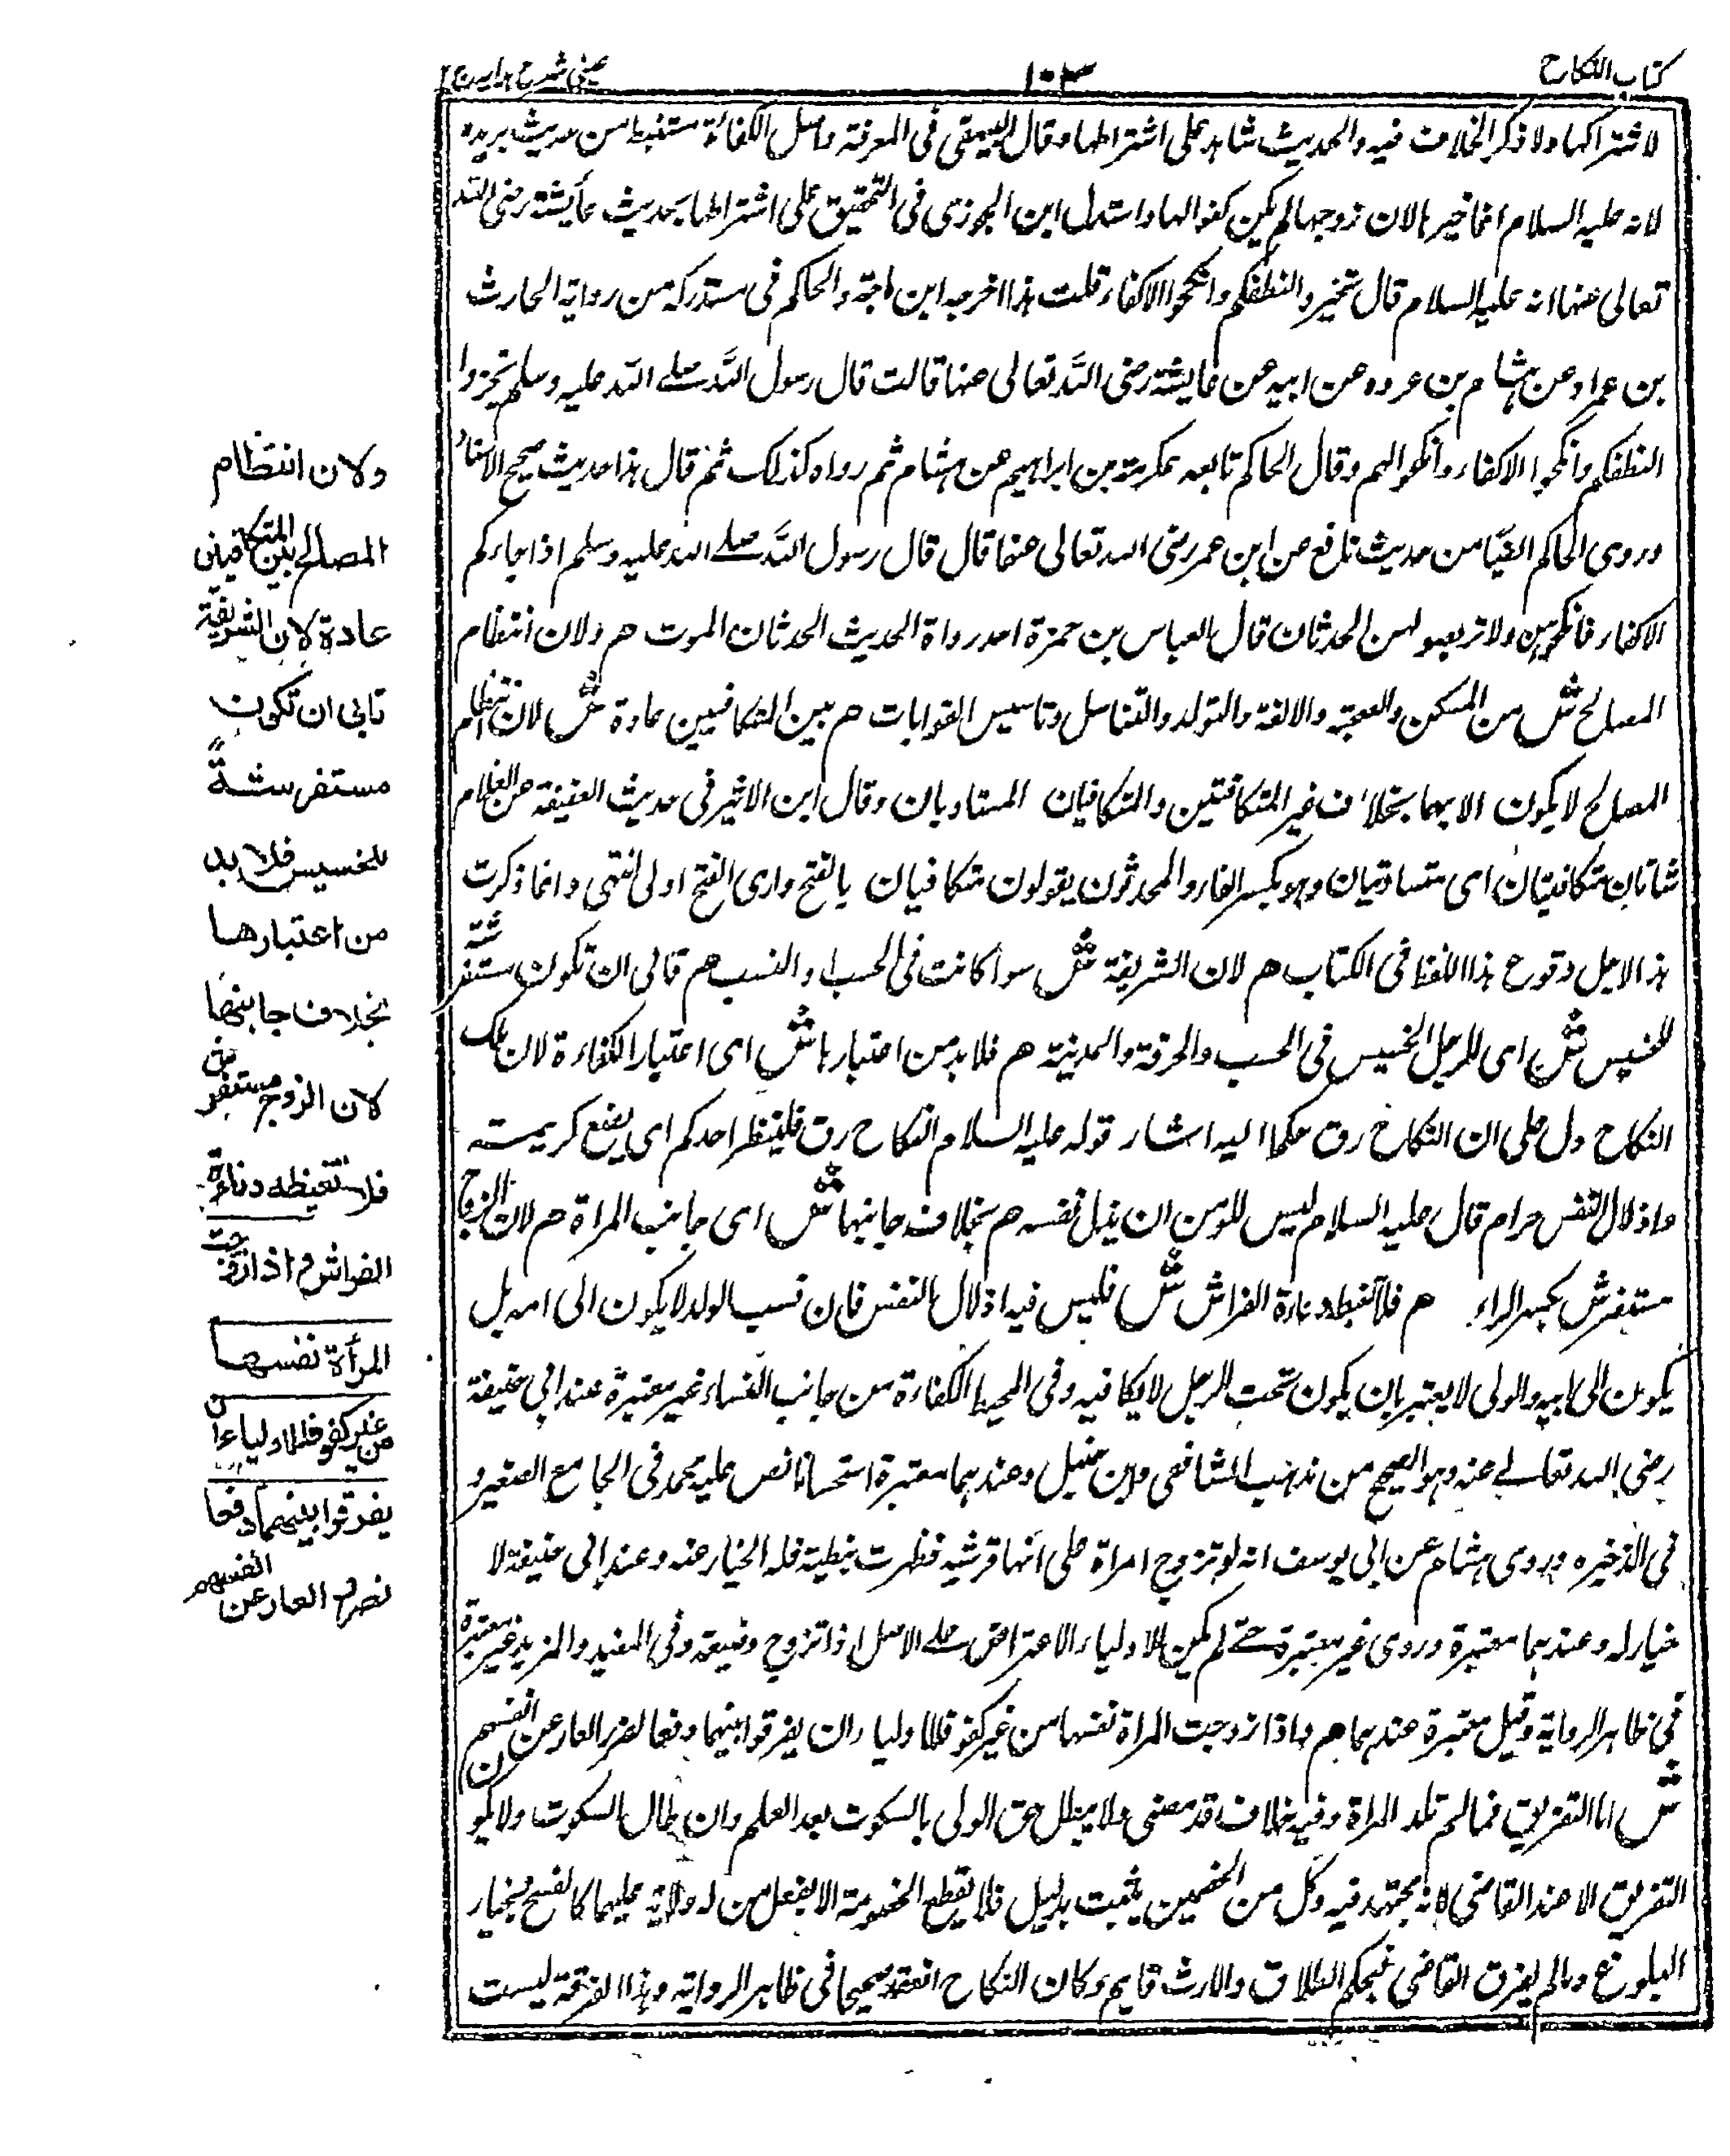 كتاب النكاح
١٠٣
عينى شرح هدايه ج ٢
لاشتراكها ولا ذكر الخلاف فيه والحديث شاهد على اشتراطها وقال البيهقى فى المعرفة واصل الكفاءة مستنبط من حديث بريرة
لانه عليه السلام انما خيرها لان زوجها لم يكن كفوا لها واستدل ابن الجوزى فى التحقيق على اشتراطها بحديث عايشة رضى الله
تعالى عنها انه عليه السلام قال تخيروا لنطفكم وانكحوا الاكفاء قلت هذا اخرجه ابن ماجة والحاكم فى مستدركه من رواية الحارث
بن عمران عن هشام بن عروه عن ابيه عن عايشة رضى الله تعالى عنها قالت قال رسول الله صلے الله عليه وسلم تخيروا
لنطفكم وانكحوا الاكفاء وانكحوا اليهم وقال الحاكم تابعه عكرمة بن ابراهيم عن هشام ثم رواه كذلك ثم قال هذا حديث صحيح الاسناد
وروى الحاكم ايضا من حديث نافع عن ابن عمر رضى الله تعالى عنها قال قال رسول الله صلے الله عليه وسلم اذا جاءكم
الاكفاء فانكحوهن ولا تربصوا لهن الحدثان قال العباس بن حمزة احد رواة الحديث الحدثان الموت هم ولان انتظام
المصالح ش من السكن والصحبة والالفة والتولد والتناسل وتاسيس القرابات هم بين المتكافيين عادة ش لان انتظام
المصالح لا يكون الا بهما بخلاف غير المتكافئين والمتكافيان المستاويان وقال ابن الاثير فى حديث العقيقة عن الغلام
شاتان متكافيتان اى متساويتان وهو بكسر الفاء والمحدثون يقولون متكافيان بالفتح وارى الفتح اولى انتهى وانما ذكرت
هذا لاجل وقوع هذا اللفظ فى الكتاب هم لان الشريفة ش سواء كانت فى الحسب او النسب هم تابى ان تكون مستفرشة
للخسيس ش اى للرجل الخسيس فى الحسب والحرفة والمدينة هم فلا بد من اعتبارها ش اى اعتبار الكفاءة لان ملك
النكاح دل على ان النكاح رق حكما اليه اشار قوله عليه السلام النكاح رق فلينظر احدكم اى يضع كريمته
واذلال النفس حرام قال عليه السلام ليس للمومن ان يذل نفسه هم بخلاف جانبها ش اى جانب المراة هم لان الزوج
مستفرش بكسر الراء هم فلا تغيظه دناءة الفراش ش فليس فيه اذلال النفس فان نسب الولد لا يكون الى امه بل
يكون الى ابيه والولى لا يعتبر بان يكون تحت الرجل لا يكافيه وفى المحيط الكفاءة من جانب النساء غير معتبرة عند ابى حنيفة
رضى الله تعالى عنه وهو الصحيح من مذهب الشافعى وابن حنبل وعندهما معتبرة استحسانا نص عليه محمد فى الجامع الصغير و
فى الذخيره وروى هشام عن ابى يوسف انه لو تزوج امراة على انها قرشيه فظهرت نبطية فله الخيار عنه وعند ابى حنيفة لا
خيار له وعندهما معتبرة وروى غير معتبرة حتے لم يكن للاولياء الاعتراض على الاصل اذا تزوج وضيعة وفى المفيد والمزيد غير معتبرة
فى ظاهر الرواية وقيل معتبرة عندهما هم واذا زوجت المراة نفسها من غير كفو فللاولياء ان يفرقوا بينهما دفعا لضرر العار عن انفسهم
ش اما التفريق فما لم تلد المراة وفيه خلاف قد مضى ولا يبطل حق الولى بالسكوت بعد العلم وان طال السكوت ولا يكون
التفريق الا عند القاضى لانه مجتهد فيه وكل من الخصمين يثبت بدليل فلا يقطع الخصومة الا بفعل من له ولاية عليهما كالفسخ بخيار
البلوغ وما لم يفرق القاضى فحكم الطلاق والارث قايم وكان النكاح انعقد صحيحا فى ظاهر الرواية وهذا الفرقة ليست
ولان انتظام
المصالح بين المتكافيين
عادة لان الشريفة
تابى ان تكون
مستفرشة
للخسيس فلا بد
من اعتبارها
بخلاف جانبها
لان الزوج مستفرش
فلا تغيظه دناءة
الفراش واذا زوجت
المرأة نفسها
من غير كفو فللاولياء ان
يفرقوا بينهما دفعا
لضرر العار عن انفسهم